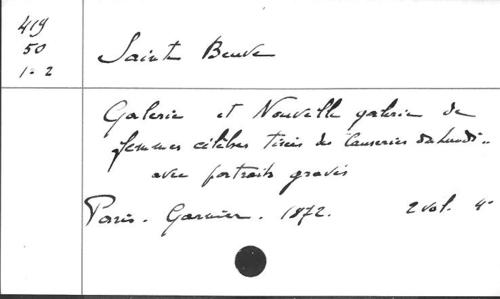 419
50
1-2
Sainte Beuve
Galerie et Nouvelle galerie de
femmes célèbres tirées des Causeries du Lundi..
avec portraits gravés
Paris. Garnier. 1872. 2 vol. 4°